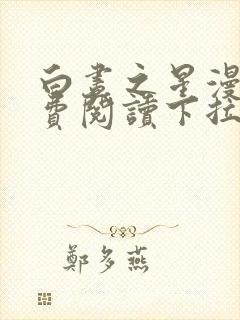 白畫之星漫
費閱讀下拉
鄭多燕